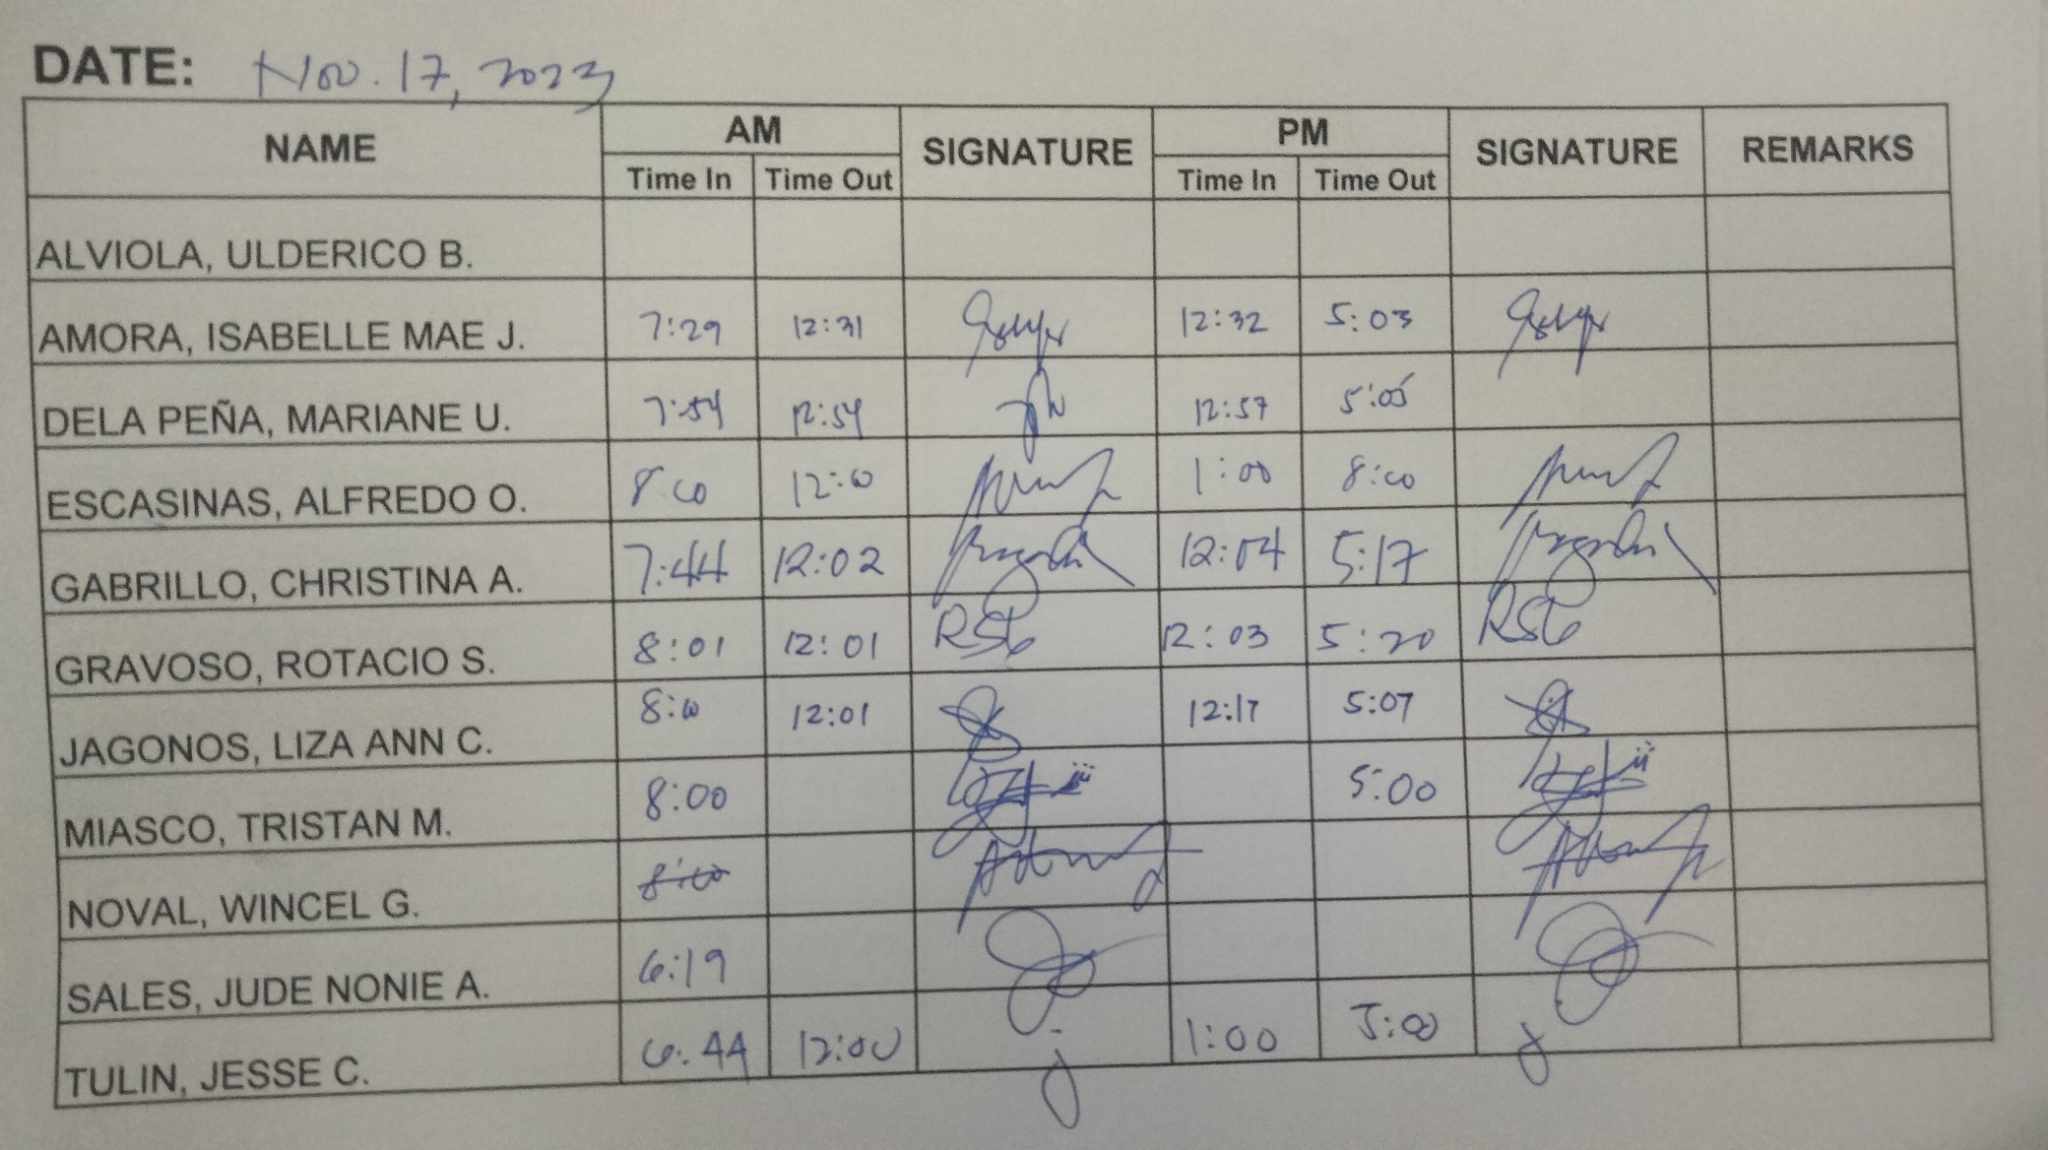 DATE: Nov. 17, 2023
NAME AM SIGNATURE PM SIGNATURE REMARKS
Time In Time Out Time In Time Out
ALVIOLA, ULDERICO B.
AMORA, ISABELLE MAE J. 7:29 12:31 12:32 5:03
DELA PEÑA, MARIANE U. 7:54 12:54 12:57 5:05
ESCASINAS, ALFREDO O. 8:00 12:00 1:00 8:00
GABRILLO, CHRISTINA A. 7:44 12:02 12:04 5:17
GRAVOSO, ROTACIO S. 8:01 12:01 RSG 12:03 5:20 RSG
JAGONOS, LIZA ANN C. 8:00 12:01 12:17 5:07
MIASCO, TRISTAN M. 8:00 5:00
NOVAL, WINCEL G. 8:00
SALES, JUDE NONIE A. 6:19
TULIN, JESSE C. 6:44 12:00 1:00 5:00